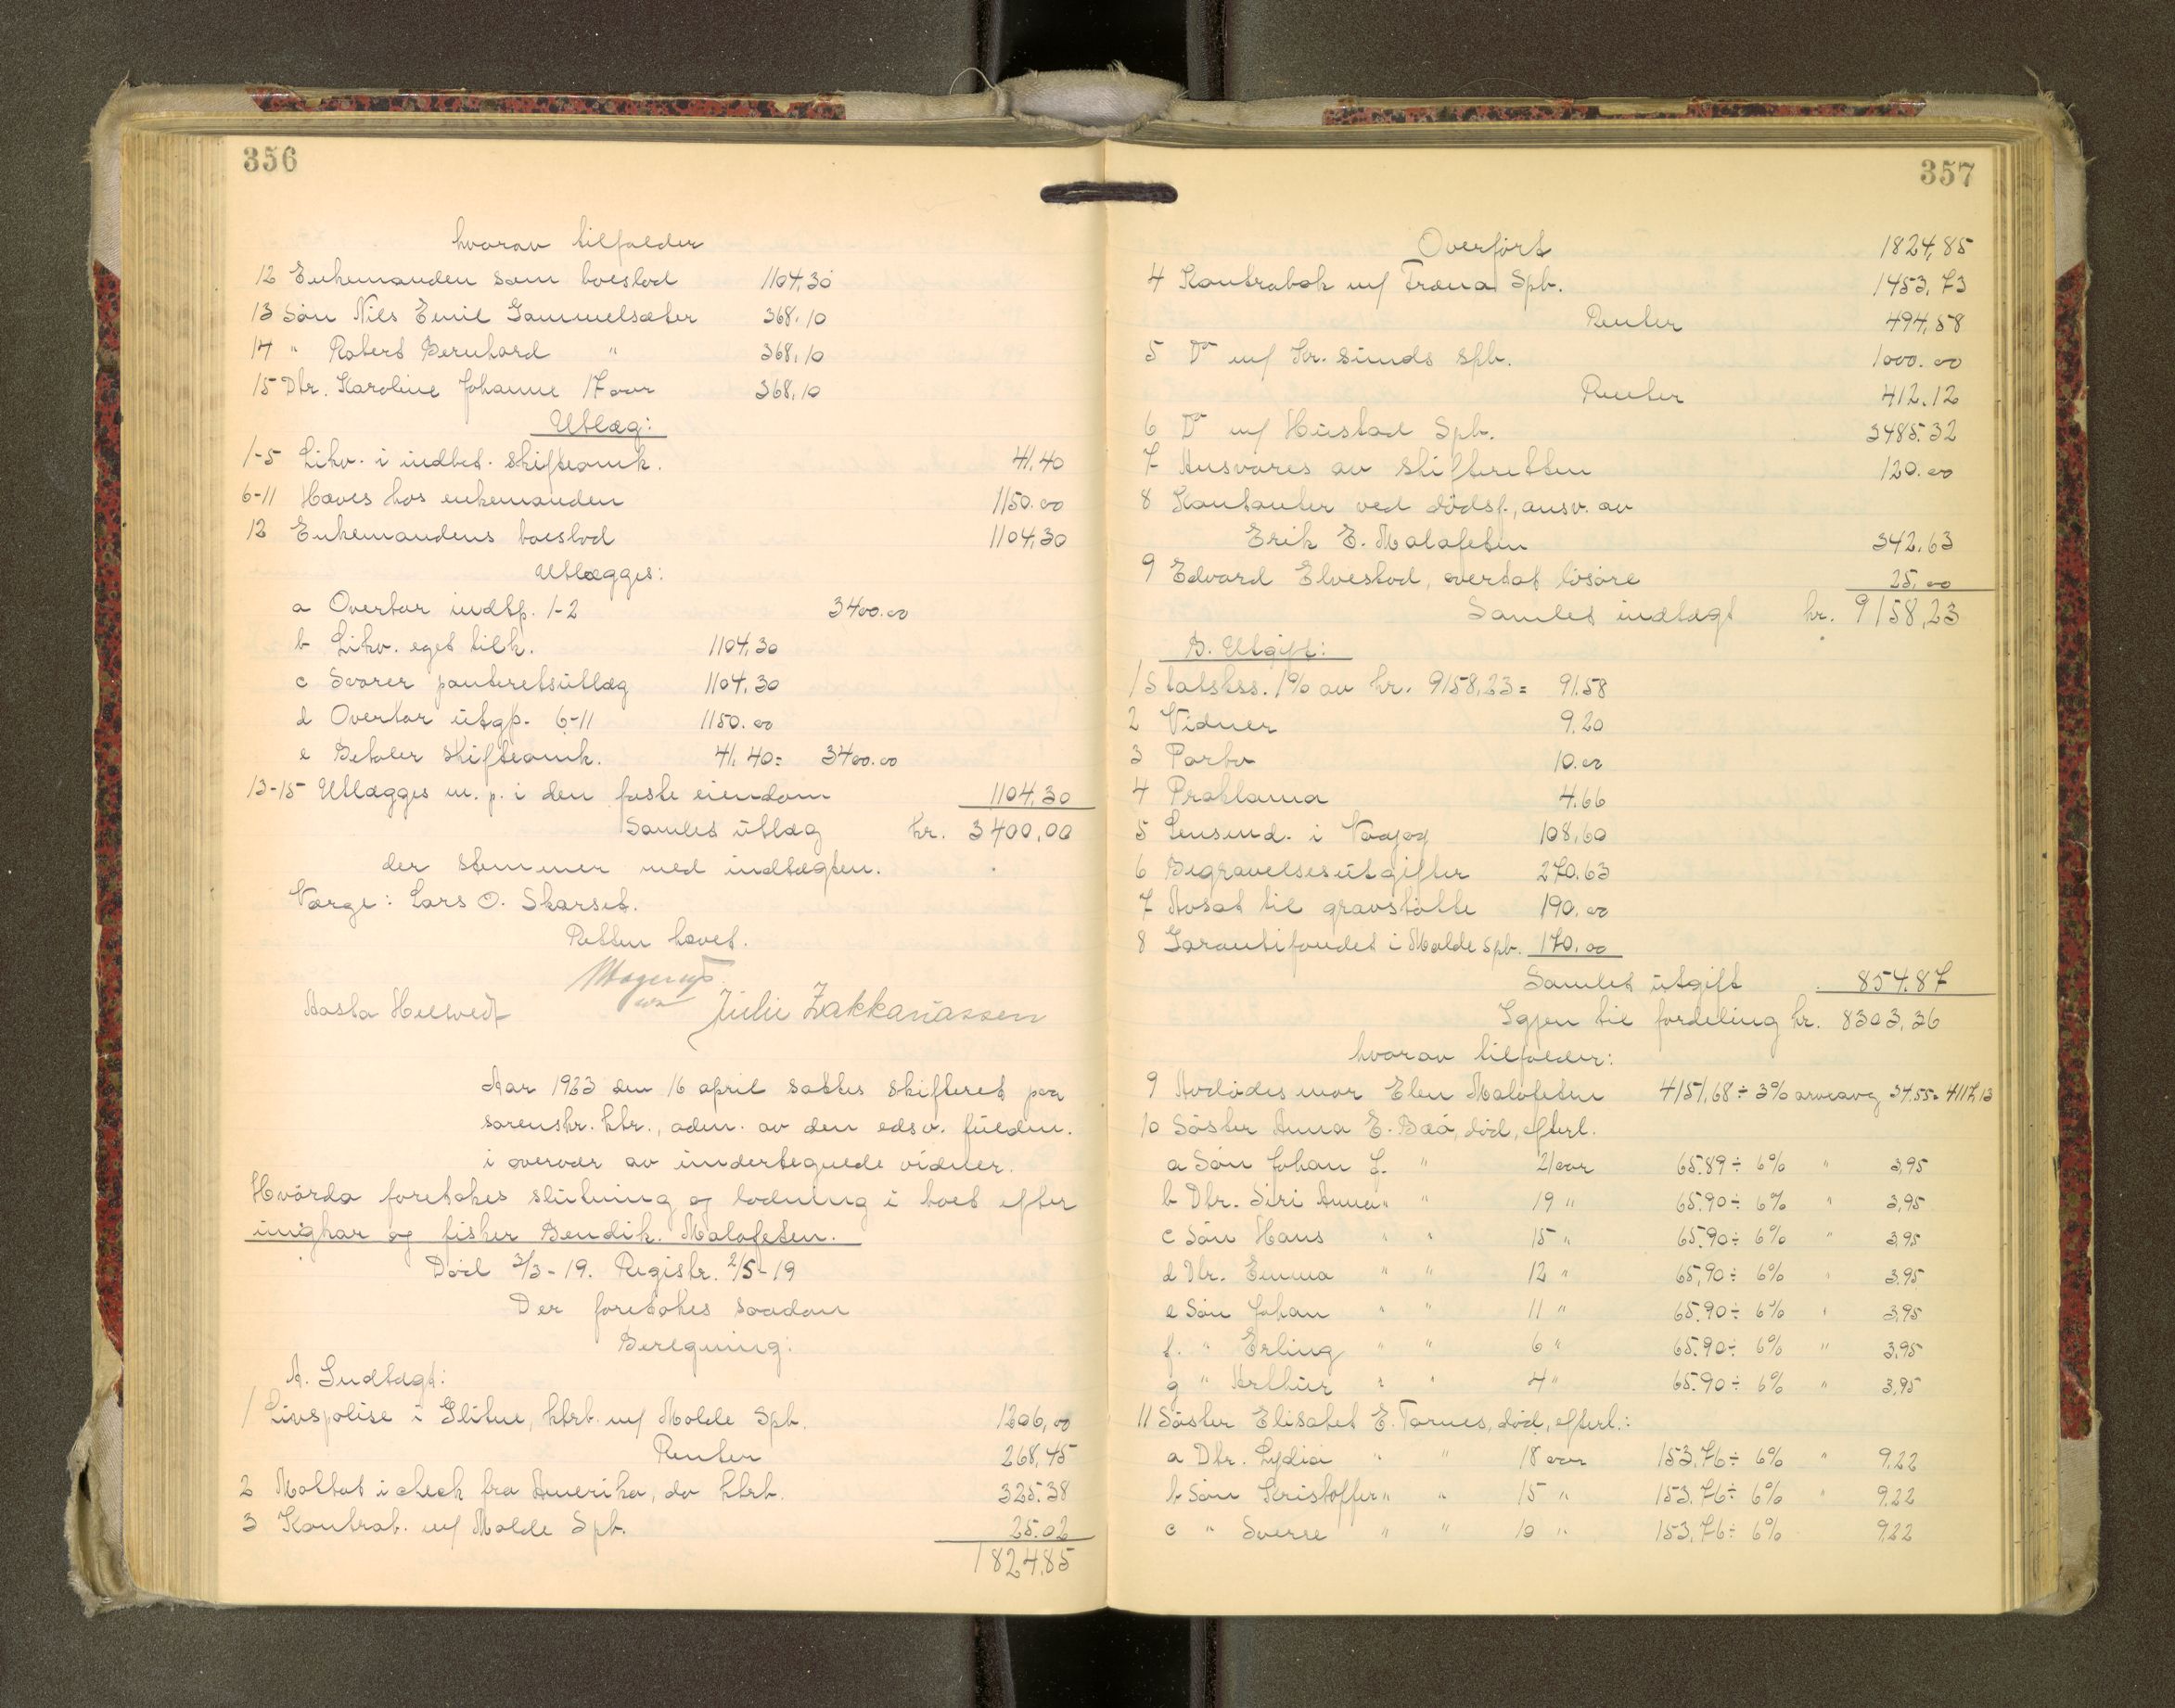 356
hvorav tilfalder
12 Enkemanden som boeslod 1104,30
13 Søn Nils Emil Gammelsæter 368,10
14 " Robert Bernhard " 368,10
15 Dtr. Karoline Johanne 17 aar 368,10
Utlæg:
1-5 Likv. i indbet. skifteomk. 41,40
6-11 Haves hos enkemanden 1150.00
12 Enkemandens boeslod 1104,30
Utlægges:
a Overtar indtp. 1-2 3400.00
b Likv. eget tilk. 1104,30
c Svarer panteretsutlæg 1104,30
d Overtar utgp. 6-11 1150.00
e Betaler skifteomk. 41,40= 3400.00
13-15 Utlægges m. p. i den faste eiendom 1104,30
Samlet utlæg kr. 3400,00
der stemmer med indtægten.
Værge: Lars O. Skarset.
Retten hævet.
Aasta Helsvedt Julie Zakkariassen
Aar 1923 den 16 april sattes skifteret paa
sorenskr. ktr., adm. av den edsv. fuldm.
i overvær av undertegnede vidner.
Hvorda foretokes slutning og lodning i boet efter
ungkar og fisker Bendik Malefeten.
Død 3/3-19. Registr. 2/5-19
Der foretokes saadan
Beregning:
A. Indtægt:
1 Livspolise i Glitne, ktrb. m/ Molde Spb. 1206,00
Renter 268,45
2 Mottat i check fra Amerika, do ktrb. 325.38
3 Kontrab. m/ Molde Spb. 25.02
1824.85
357
Overført 1824,85
4 Kontrabok m/ Fræna Spb. 1453,73
Renter 494,58
5 Do m/ Kr.sunds Spb. 1000.00
Renter 412.12
6 Do m/ Hustad Spb. 3485.32
7 Ansvares av skifteretten 120.00
8 Kontanter ved dødsf., ansv. av
Erik E. Malefeten 342,63
9 Edvard Elvestad, overtat løsøre 25,00
Samlet indtægt kr. 9158,23
B. Utgift:
1 Statskss. 1% av kr. 9158,23= 91.58
2 Vidner 9.20
3 Porto 10.00
4 Proklama 4.66
5 Lensmd. i Vaagøy 108,60
6 Begravelsesutgifter 270.63
7 Avsat til gravstøtte 190.00
8 Garantifondet i Molde Spb. 170.00
Samlet utgift 854.87
Igjen til fordeling kr. 8303,36
hvorav tilfalder:
9 Avdødes mor Elen Malefeten 4151,68 ÷ 3% arveavg 34.55= 4117,13
10 Søster Anna E. Bøø, død, efterl.
a Søn Johan J. " 21 aar 65.89 ÷ 6% " 3,95
b Dtr. Siri Anna " " 19 " 65.90 ÷ 6% " 3,95
c Søn Hans " " 15 " 65.90 ÷ 6% " 3,95
d Dtr. Emma " " 12 " 65,90 ÷ 6% " 3.95
e Søn Johan " " 11 " 65.90 ÷ 6% " 3,95
f. " Erling " " 6 " 65.90 ÷ 6% " 3,95
g " Arthur " " 4 " 65.90 ÷ 6% " 3,95
11 Søster Elisabet E. Tornes, død, efterl.:
a Dtr. Lydia " " 18 aar 153,76 ÷ 6% " 9.22
b Søn Kristoffer " " 15 " 153.76 ÷ 6% " 9.22
c " Sverre " " 10 " 153,76 ÷ 6% 9.22